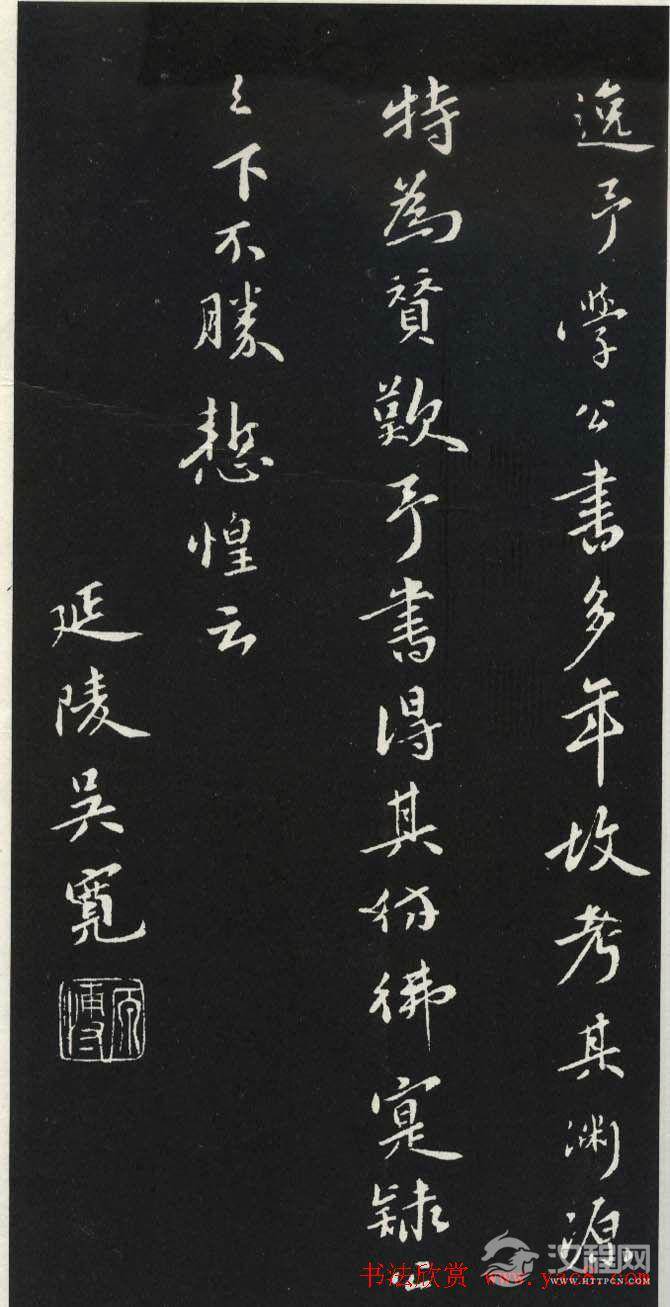 逸予學公書多年故考其渊源
特為贊歎予書得其彷彿寘
之下不勝慙惶云
延陵吳寬
原博
书法欣赏
汉程网
WWW.HTTPCN.COM